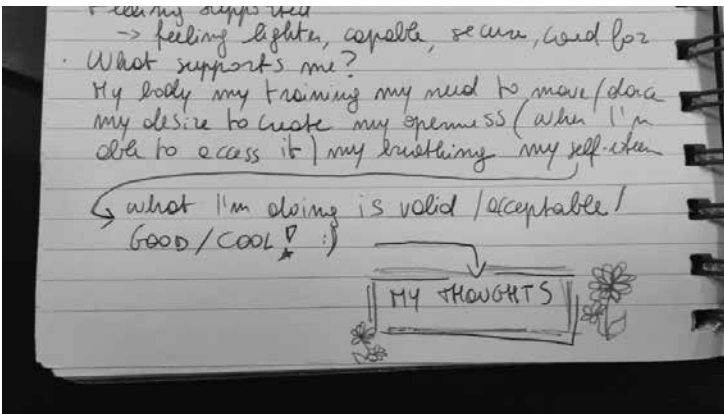 Feeling supported
-> feeling lighter, capable, secure, cared for
· What supports me?
My body my training my need to move/dance
my desire to create my openness (when I'm
able to access it) my breathing my self-esteem
what I'm doing is valid/acceptable/
GOOD/COOL! :)
MY THOUGHTS